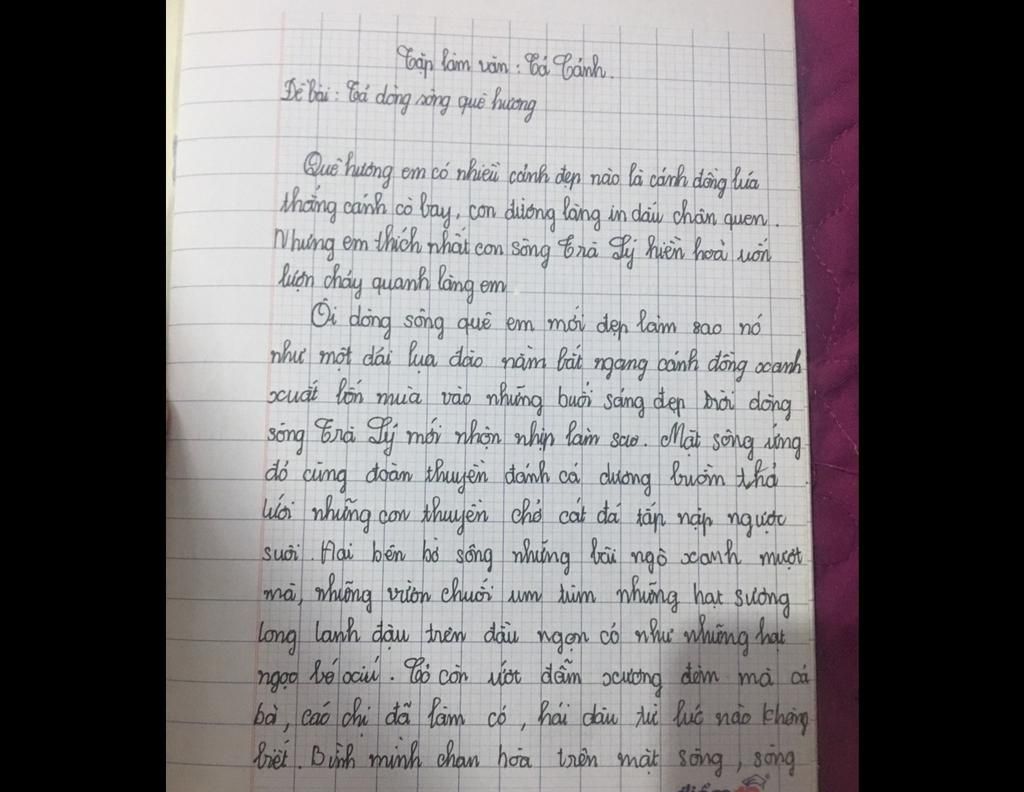 Tập làm văn : Tả Cảnh.
Đề bài : Tả dòng sông quê hương
Quê hương em có nhiều cảnh đẹp nào là cánh đồng lúa
thẳng cánh cò bay, con đường làng in dấu chân quen.
Nhưng em thích nhất con sông Trà Lý hiền hoà uốn
lượn chảy quanh làng em
Ôi dòng sông quê em mới đẹp làm sao nó
như một dải lụa đào nằm bắt ngang cánh đồng xanh
xuất bốn mùa vào những buổi sáng đẹp trời dòng
sông Trà Lý mới nhộn nhịp làm sao. Mặt sông ửng
đỏ cùng đoàn thuyền đánh cá dương buồm thả
lưới những con thuyền chở cát đá tấp nập ngược
suôi. Hai bên bờ sông những bãi ngô xanh mượt
mà, những vườn chuối um tùm những hạt sương
long lanh đậu trên đầu ngọn cỏ như những hạt
ngọc bé xíu. Cỏ còn ướt đẫm xương đêm mà cá
bà, các chị đã làm cỏ, hái dâu từ lúc nào không
biết. Bình minh chan hòa trên mặt sông, sóng